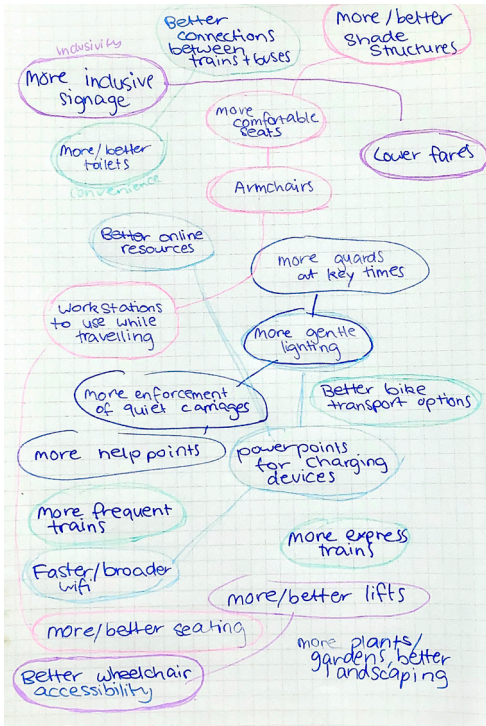 Better
connections
between
trains + buses
more/better
shade
structures
inclusivity
more inclusive
signage
more
comfortable
seats
more/better
toilets
convenience
Lower fares
Armchairs
Better online
resources
more guards
at key times
workstations
to use while
travelling
more gentle
lighting
more enforcement
of quiet carriages
Better bike
transport options
more help points
powerpoints
for charging
devices
more frequent
trains
more express
trains
Faster/broader
wifi
more/better lifts
more/better seating
more plants/
gardens, better
landscaping
Better wheelchair
accessibility